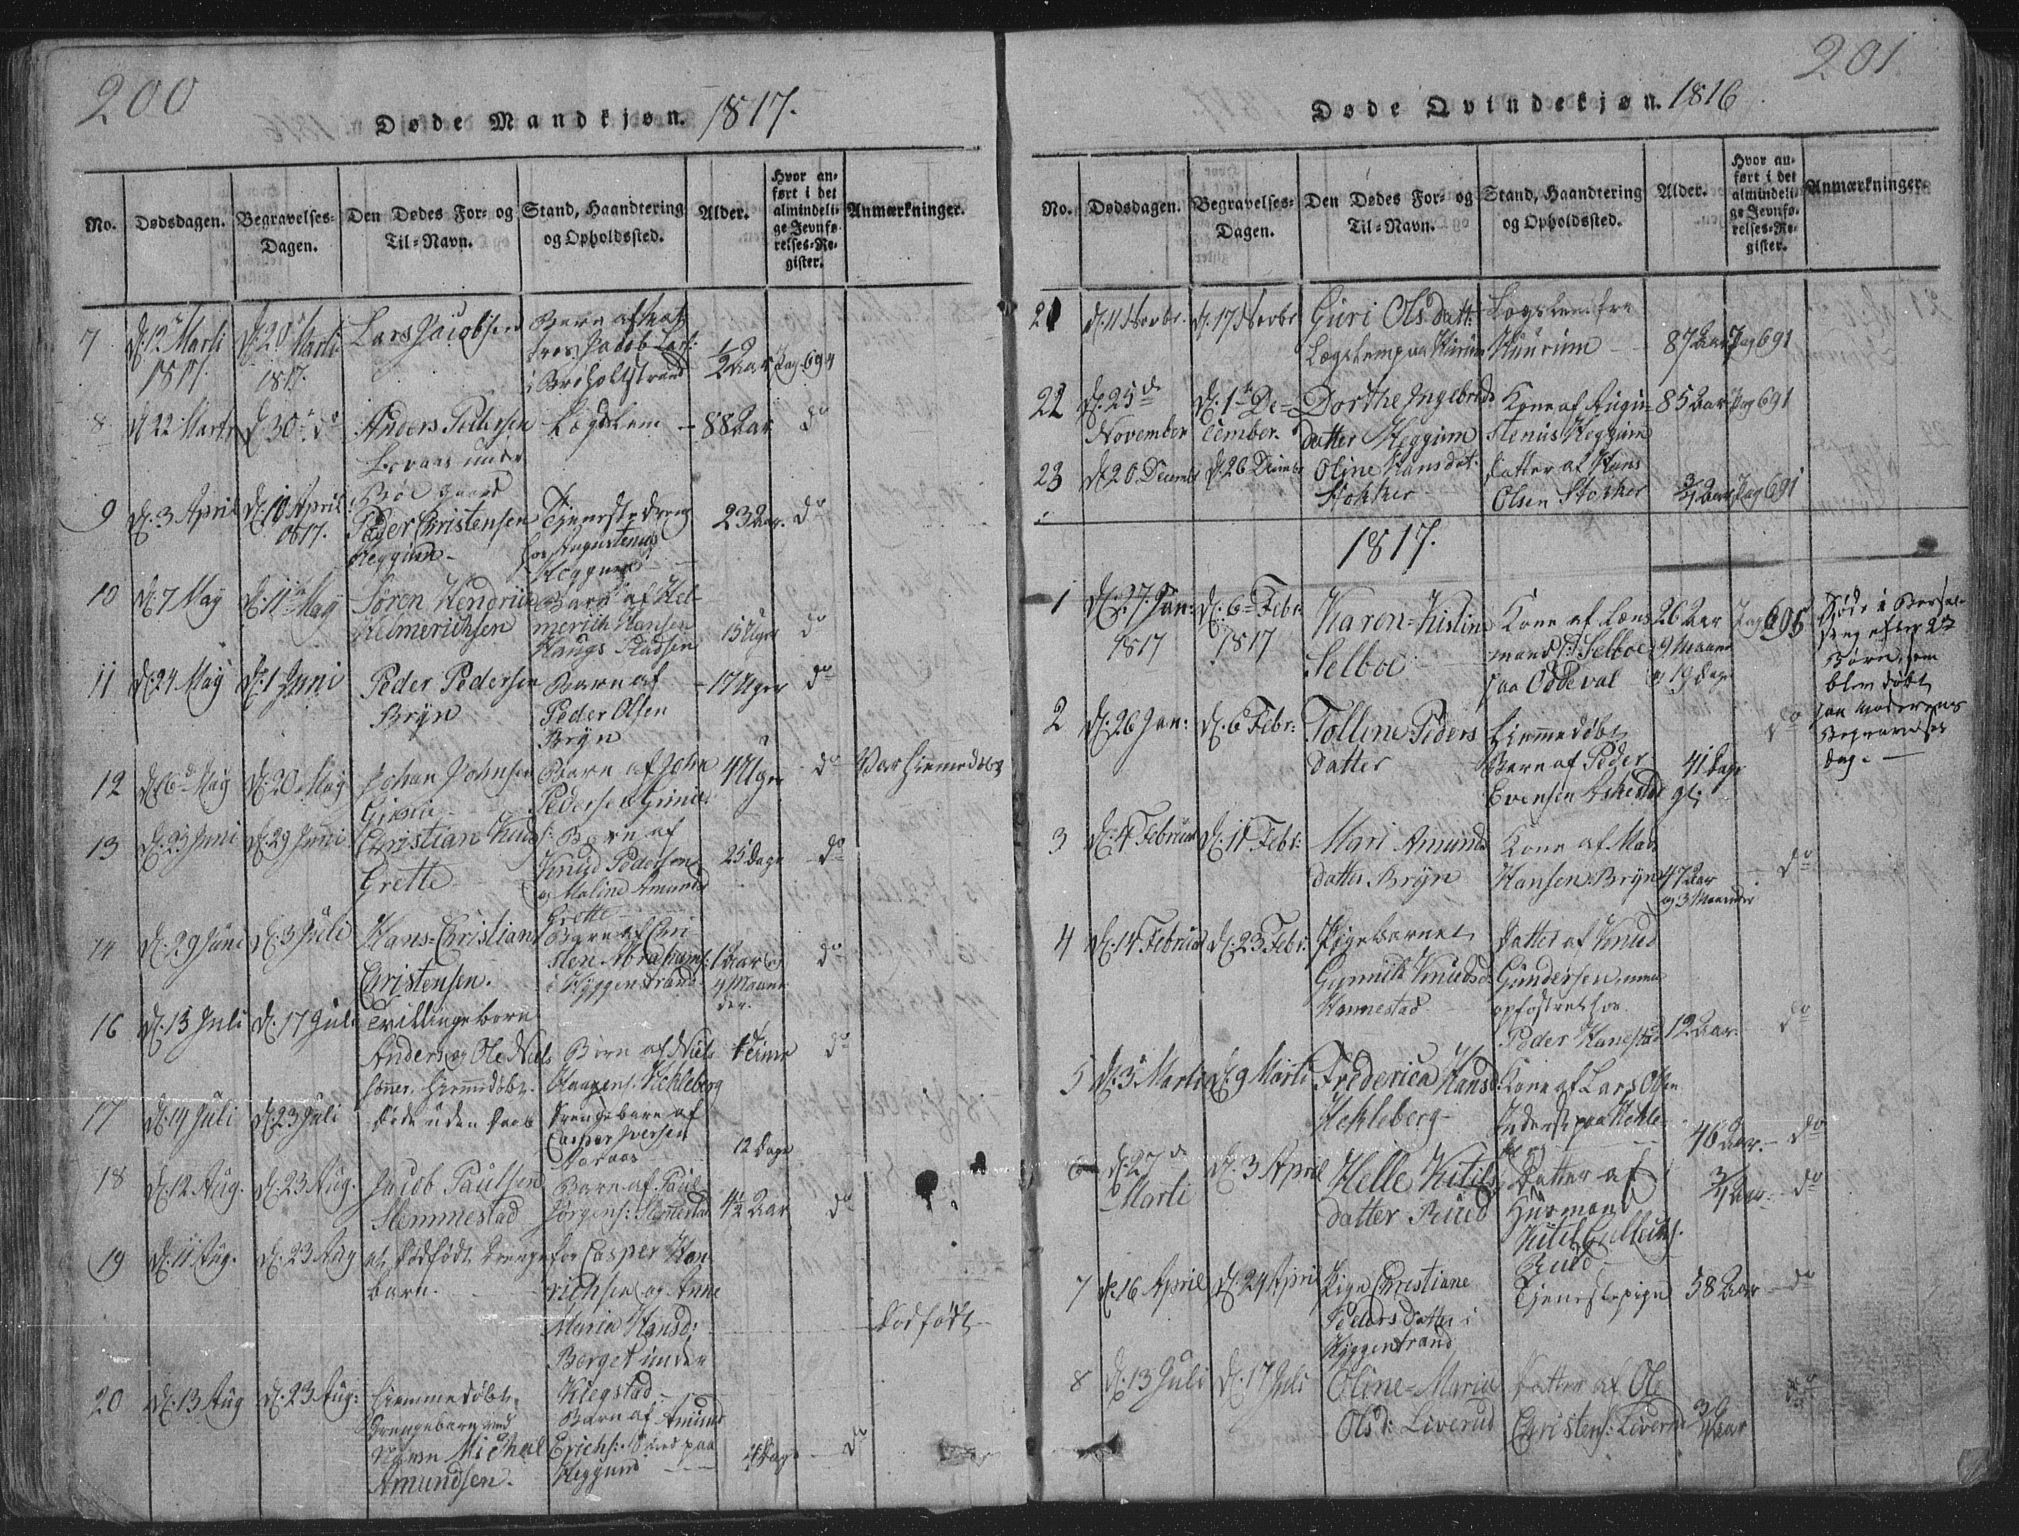 200
Døde Mandkjøn. 1817.
No. Dødsdagen. Begravelses-Dagen. Den Dødes For- og Til-Navn. Stand, Haandtering og Opholdssted. Alder. Hvor anført i det almindelige Jevnførelses-Register. Anmærkninger.
7 d. 12 Marti 1817 d. 20 Marti 1817. Lars Jacobsen Barn af Jacob Lars: ½ Aar Pag 694
8 d. 22 Marti d. 30 do Anders Pedersen Lægdslem 88 Aar do
9 d. 3 April d. 10 April 1817. Peder Christensen Heggum Tjenestedreng hos Augustenus Heggum 23 Aar. do
10 d. 7 May d. 11 May Søren Hendrich Helmerichsen Barn af Helmerich Hansen 15 Uger do
11 d. 24 May d. 1 Juni Peder Pedersen Bryn Barn af Peder Olsen Bryn 17 Uger do
12 d. 6 May d. 20 May Johan Johnsen Gimie Barn af John Pedersen Gimie 4 Uger do Var hiemmedøbt
13 d. 23 Juni d. 29 Juni Christian Knuds: Grette Barn af Knud Pedersen og Maline Amunds Grette 25 Dage do
14 d. 29 Juni d. 3 Juli Hans-Christian Christensen. Barn af Christen Abrahams: i Hyggenstrand 1 Aar og 4 Maaneder. do
16 d. 13 Juli d. 17 Juli Tvillingebørn Anders og Ole Niels Sønner, hiemmedøbt. Børn af Niels Haagens: Hekleberg Timer do
17 d. 14 Juli d. 23 Juli Døde uden Daab Drengebarn af Casper Iversen 12 Dage
18 d. 12 Aug. d. 23 Aug. Jacob Paulsen Slemmestad Barn af Paul Jørgens: Slemmestad 4½ Aar do
19 d. 11 Aug. d. 23 Aug et dødfødt Drengebarn. for Casper Henrichsen og Anne Maria Hansd: Berget under Kiegstad Dødfødt
20 d. 13 Aug d. 23 Aug: hiemmedøbt Drengebarn ved Navn Michal Amundsen. Barn af Amund Erichs: Lund paa Heggum 4 Dage do
201
Døde Qvindekjøn. 1816
No. Dødsdagen. Begravelses-Dagen. Den Dødes For- og Til-Navn. Stand, Haandtering og Opholdssted. Alder. Hvor anført i det almindelige Jevnførelses-Register. Anmærkninger.
21 d. 11 Novbr. d. 17 Novbr Guri Olsdatt: Lægslem paa Huurum Lægslem fra Huurum 87 Aar Pag 691
22 d. 25 November d. 1 December. Dorthe Ingebretsdatter Heggum Kone af Augustenus Heggum 85 Aar Pag 691
23 d. 20 Decembr d. 26 Decembr Oline Hansdat: Stokker Datter af Hans Olsen Stokker ¾ Aar Pag 691
1817.
1 d. 27 Jan: 1817 d. 6 Febr: 1817 Karen-Kistine Selboe Kone af Lensmand Selboe paa Oddeval 26 Aar 9 Maaned og 19 Dage Pag 695 Døde i Barselseng efter 2de Børn, som blev døbt paa Moderens Begravelses dag.
2 d. 26 Jan: d. 6 Febr: Tolline Pedersdatter hiemmedøbt Barn af Peder Evensen Askestad 41 Dage gl: do
3 d. 4 Februar d. 11 Febr: Mari Amundsdatter Bryn Kone af Mads Hansen Bryn 47 Aar og 3 Maaneder do
4 d. 14 Februar d. 23 Febr: Pigebarnet Gunnild Knudsd: Hannestad Datter af Knud Gundersen, men opfostret hos Peder Hanestad 12 Aar. do
5 d. 3 Marti d. 9 Marti Frederica Hansd: Hekleberg Kone af Lars Olsen Inderst paa Hekleberg 46 Aar. do
6 d. 27 Marti d. 3 April Helle Kitilsdatter Ruud Datter af Husmand Kitil Gulleichs. Ruud ¾ Aar do
7 d. 16 April d. 24 April Pige Christiane Pedersdatter i Hyggenstrand Tjenestepige 58 Aar do
8 d. 13 Juli d. 17 Juli Oline-Maria Olsd: Liverud Datter af Ole Christens: Liverud ¾ Aar do